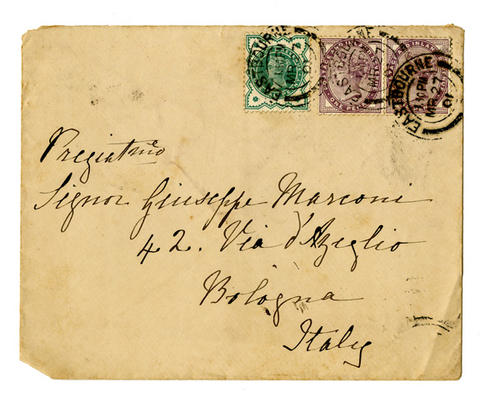 EASTBOURNE EASTBOURNE EASTBOURNE
PM
MR 27
01
Pregiatmo
Signor Giuseppe Marconi
42. Via d'Azeglio
Bologna
Italy